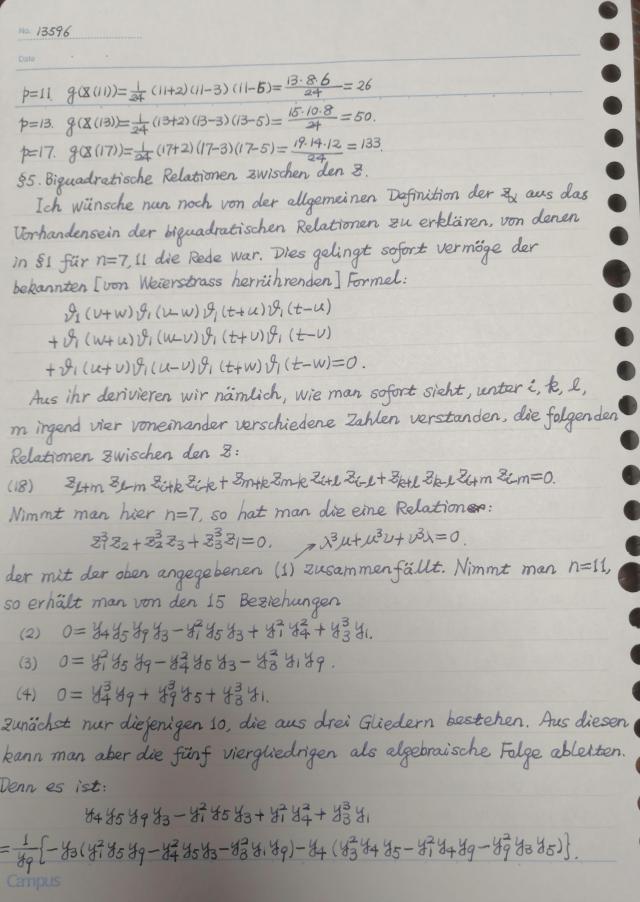 No. 13596
Date
p=11. g(X(11))=1/24 (11+2)(11-3)(11-5)=13·8·6/24=26
p=13. g(X(13))=1/24 (13+2)(13-3)(13-5)=15·10·8/24=50.
p=17. g(X(17))=1/24 (17+2)(17-3)(17-5)=19·14·12/24=133.
§5. Biquadratische Relationen zwischen den z.
Ich wünsche nun noch von der allgemeinen Definition der z_α aus das
Vorhandensein der biquadratischen Relationen zu erklären, von denen
in §1 für n=7,11 die Rede war. Dies gelingt sofort vermöge der
bekannten [von Weierstrass herrührenden] Formel:
ϑ₁(v+w)ϑ₁(v-w)ϑ₁(t+u)ϑ₁(t-u)
+ϑ₁(w+u)ϑ₁(w-u)ϑ₁(t+v)ϑ₁(t-v)
+ϑ₁(u+v)ϑ₁(u-v)ϑ₁(t+w)ϑ₁(t-w)=0.
Aus ihr derivieren wir nämlich, wie man sofort sieht, unter i, k, l,
m irgend vier voneinander verschiedene Zahlen verstanden, die folgenden
Relationen zwischen den z:
(18) z_{l+m} z_{l-m} z_{i+k} z_{i-k} + z_{m+k} z_{m-k} z_{i+l} z_{i-l} + z_{k+l} z_{k-l} z_{i+m} z_{i-m}=0.
Nimmt man hier n=7, so hat man die eine Relation:
z₁³z₂+z₂³z₃+z₃³z₁=0. ↗λ³μ+μ³ν+ν³λ=0.
der mit der oben angegebenen (1) zusammenfällt. Nimmt man n=11,
so erhält man von den 15 Beziehungen
(2) 0=y₄y₅y₉y₃-y₁²y₅y₃+y₁²y₄²+y₃³y₁.
(3) 0=y₁²y₅y₉-y₄²y₅y₃-y₃²y₁y₉.
(4) 0=y₄³y₉+y₉³y₅+y₃³y₁.
zunächst nur diejenigen 10, die aus drei Gliedern bestehen. Aus diesen
kann man aber die fünf viergliedrigen als algebraische Folge ableiten.
Denn es ist:
y₄y₅y₉y₃-y₁²y₅y₃+y₁²y₄²+y₃³y₁
=1/y₉{-y₃(y₁²y₅y₉-y₄²y₅y₃-y₃²y₁y₉)-y₄(y₃²y₄y₅-y₁²y₄y₉-y₉²y₃y₅)}.
Campus